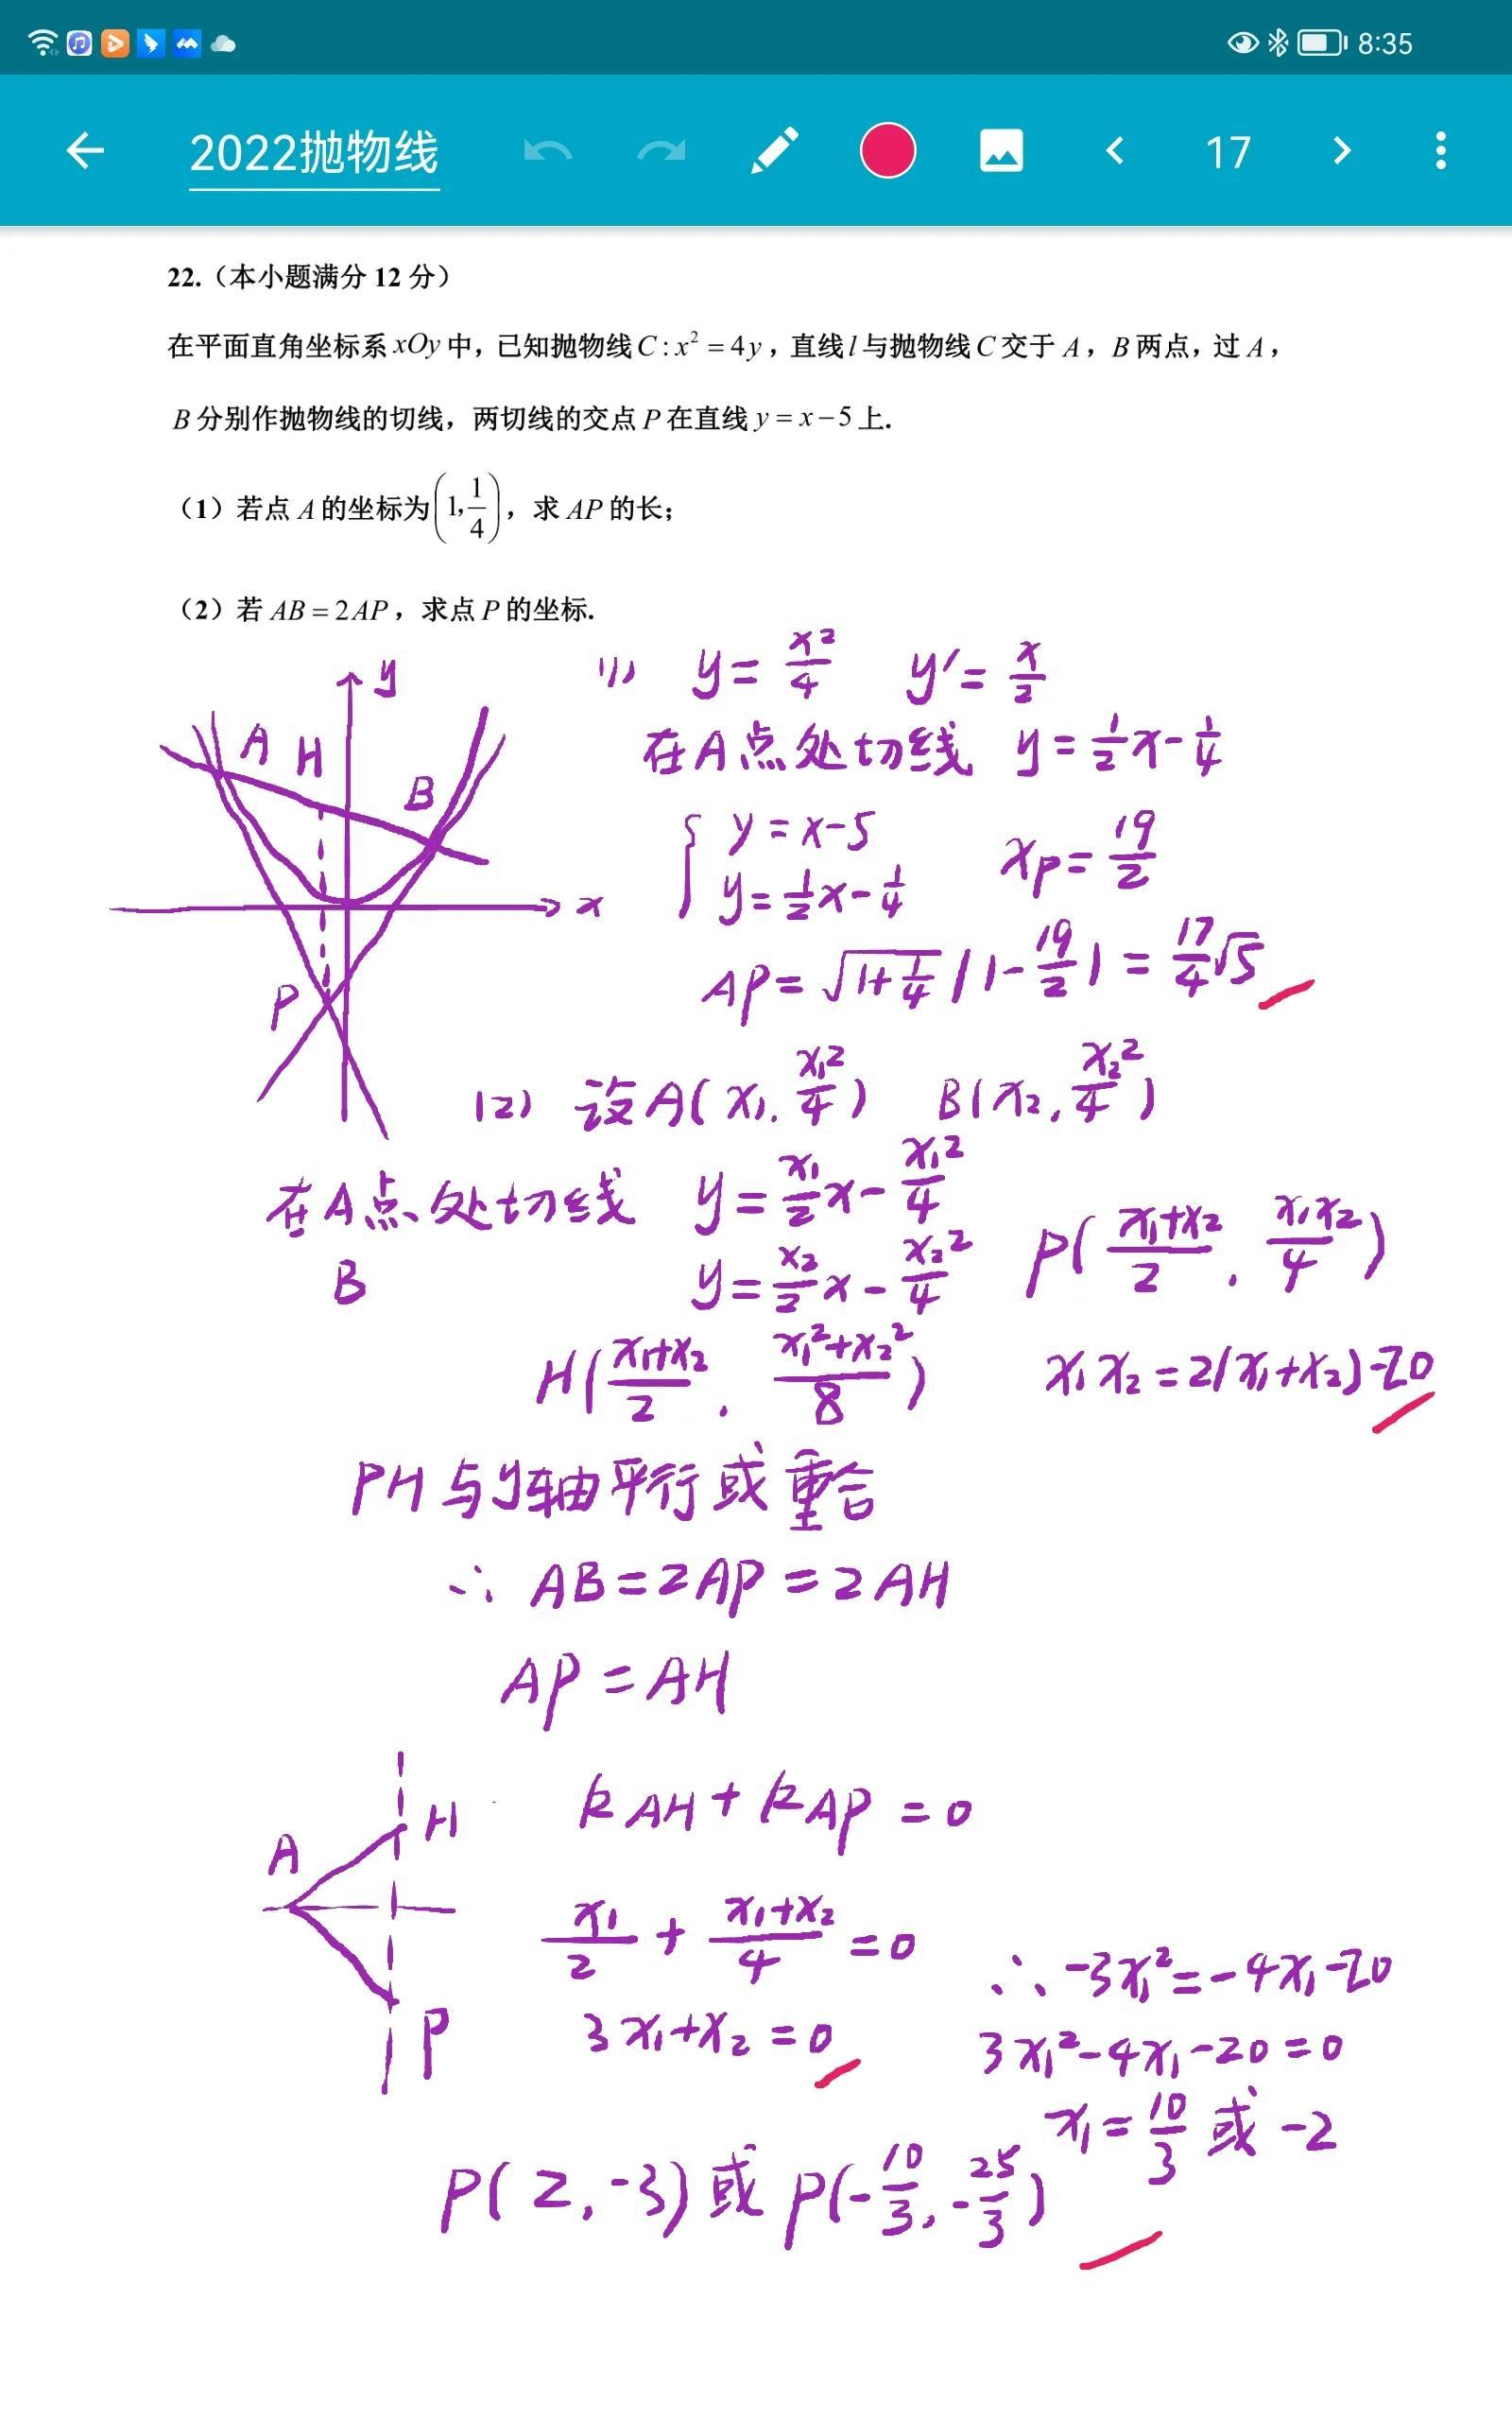 8:35
2022抛物线 17
22.（本小题满分 12 分）
在平面直角坐标系 xOy 中，已知抛物线 C : x² = 4y，直线 l 与抛物线 C 交于 A，B 两点，过 A，
B 分别作抛物线的切线，两切线的交点 P 在直线 y = x − 5 上.
（1）若点 A 的坐标为 (1, 1/4)，求 AP 的长；
（2）若 AB = 2AP，求点 P 的坐标.
y
A H
B
x
P
(1) y = x²/4 y′ = x/2
在A点处切线 y = 1/2 x - 1/4
{ y = x-5
y = 1/2 x - 1/4 xP = 19/2
AP = √(1+1/4) |1 - 19/2| = 17/4 √5
(2) 设A(x₁, x₁²/4) B(x₂, x₂²/4)
在A点处切线 y = x₁/2 x - x₁²/4
B y = x₂/2 x - x₂²/4 P((x₁+x₂)/2, x₁x₂/4)
H((x₁+x₂)/2, (x₁²+x₂²)/8) x₁x₂ = 2(x₁+x₂)-20
PH与y轴平行或重合
∴ AB = 2AP = 2AH
AP = AH
A H
P
kAH + kAP = 0
x₁/2 + (x₁+x₂)/4 = 0
3x₁+x₂ = 0
∴ -3x₁² = -4x₁-20
3x₁²-4x₁-20 = 0
x₁ = 10/3 或 -2
P(2, -3) 或 P(-10/3, -25/3)